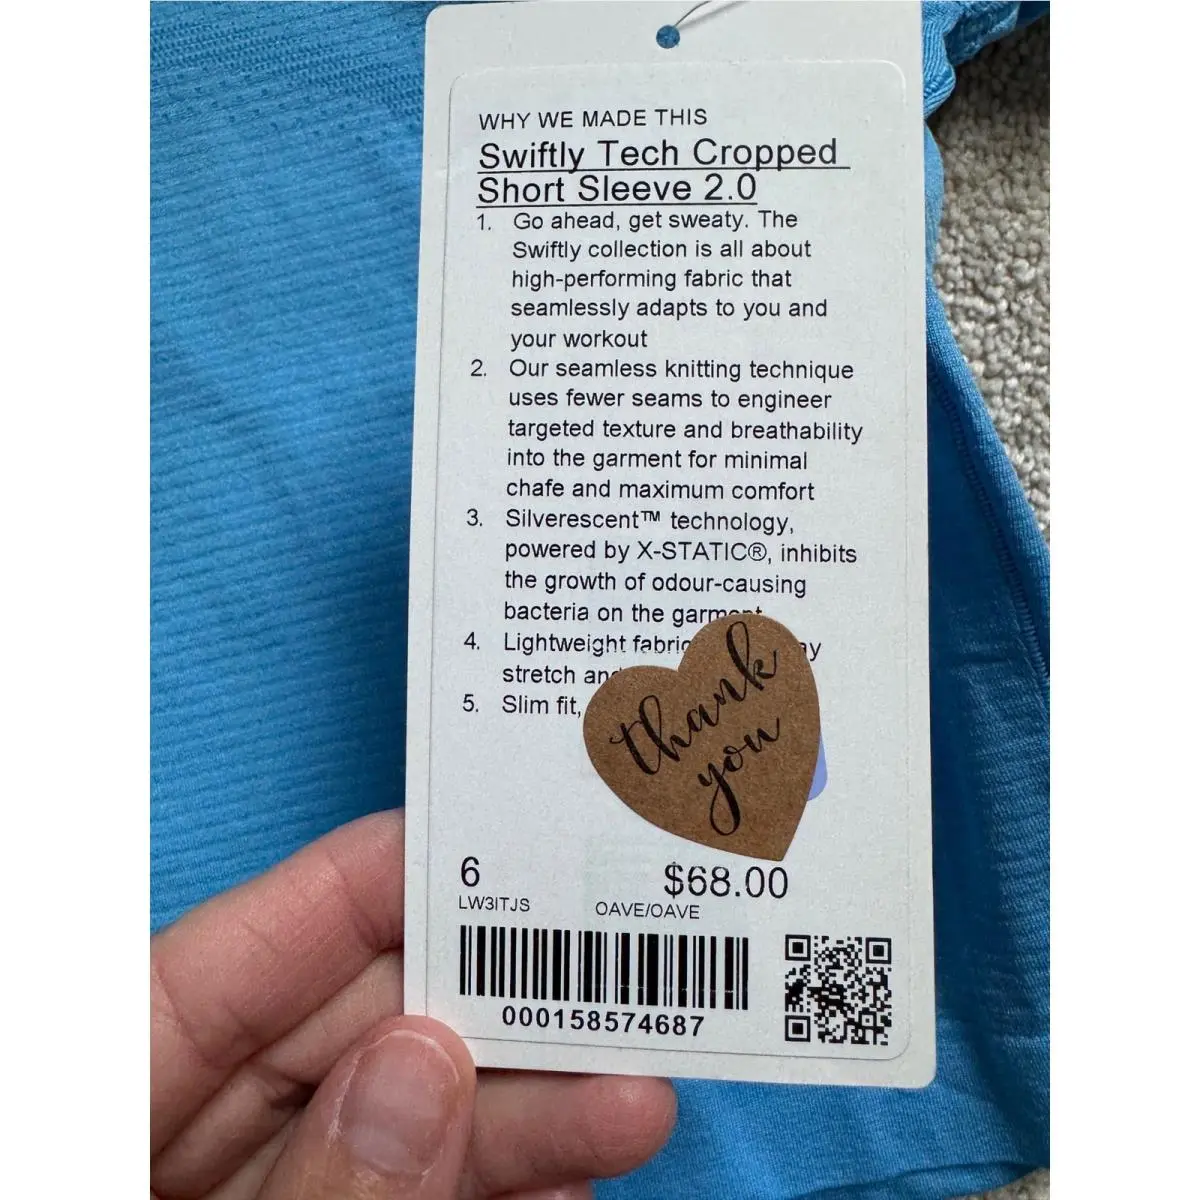 WHY WE MADE THIS
Swiftly Tech Cropped
Short Sleeve 2.0
1. Go ahead, get sweaty. The
Swiftly collection is all about
high-performing fabric that
seamlessly adapts to you and
your workout
2. Our seamless knitting technique
uses fewer seams to engineer
targeted texture and breathability
into the garment for minimal
chafe and maximum comfort
3. Silverescent™ technology,
powered by X-STATIC®, inhibits
the growth of odour-causing
bacteria on the garment
4. Lightweight fabric
stretch and
5. Slim fit,
thank
you
6 $68.00
LW3ITJS OAVE/OAVE
000158574687